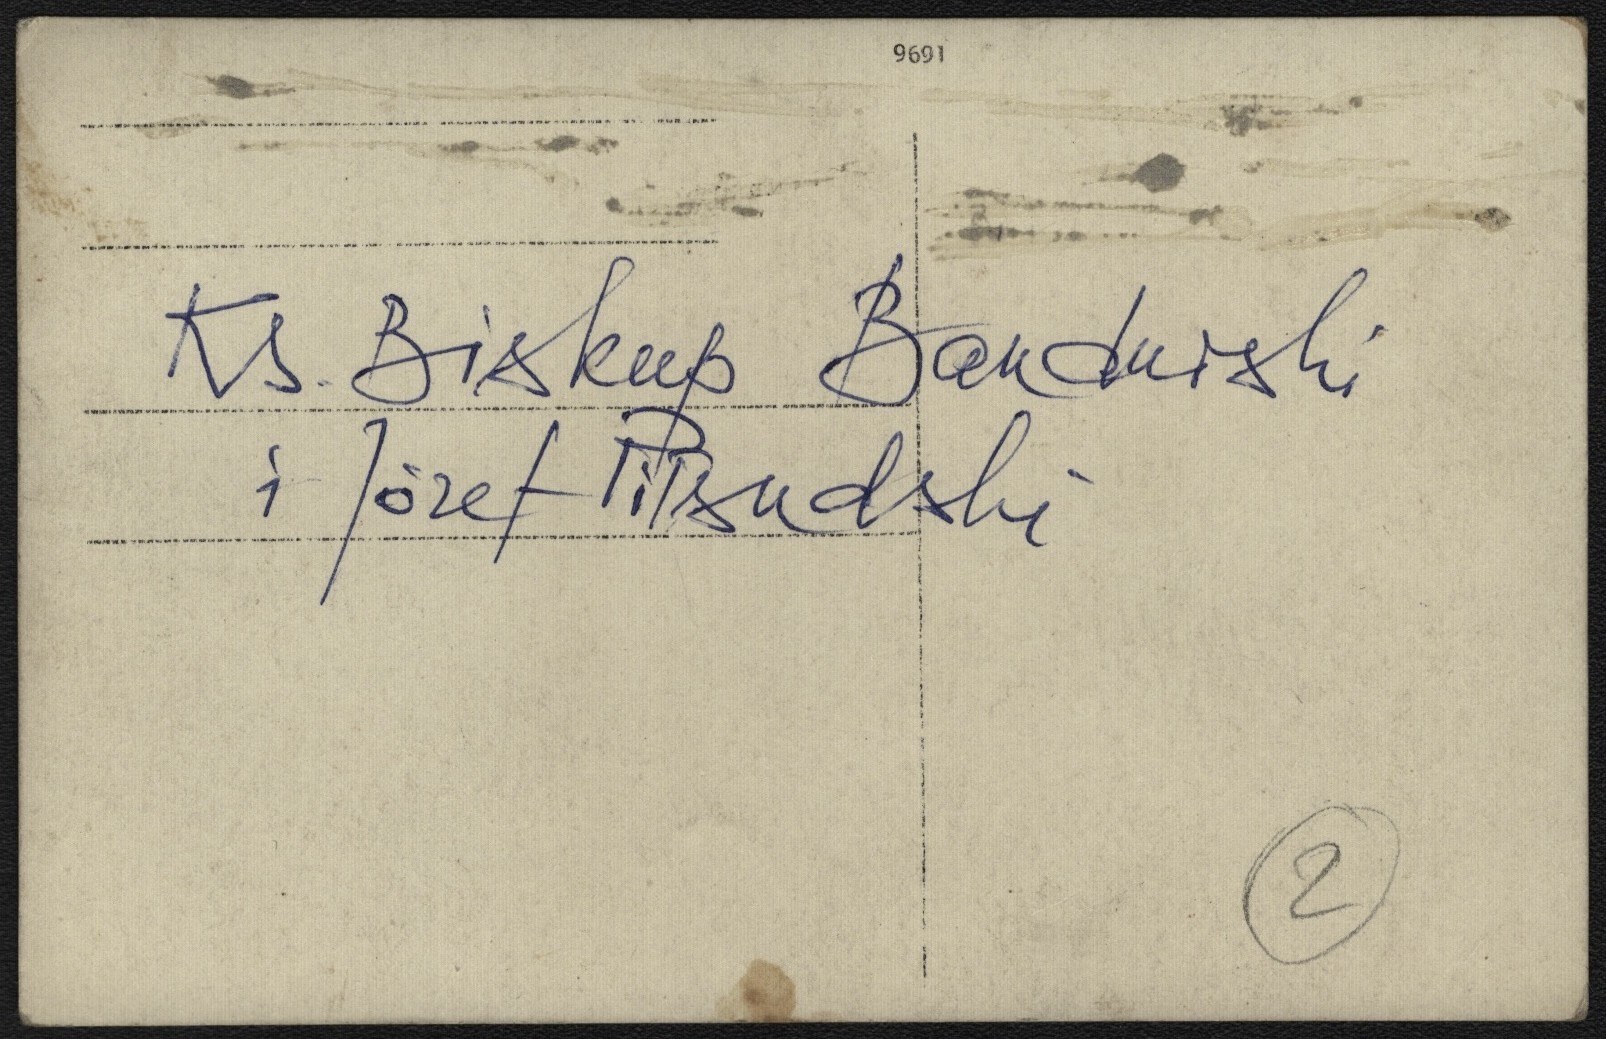 9691
Ks. Biskup Bandurski
i Józef Piłsudski
2